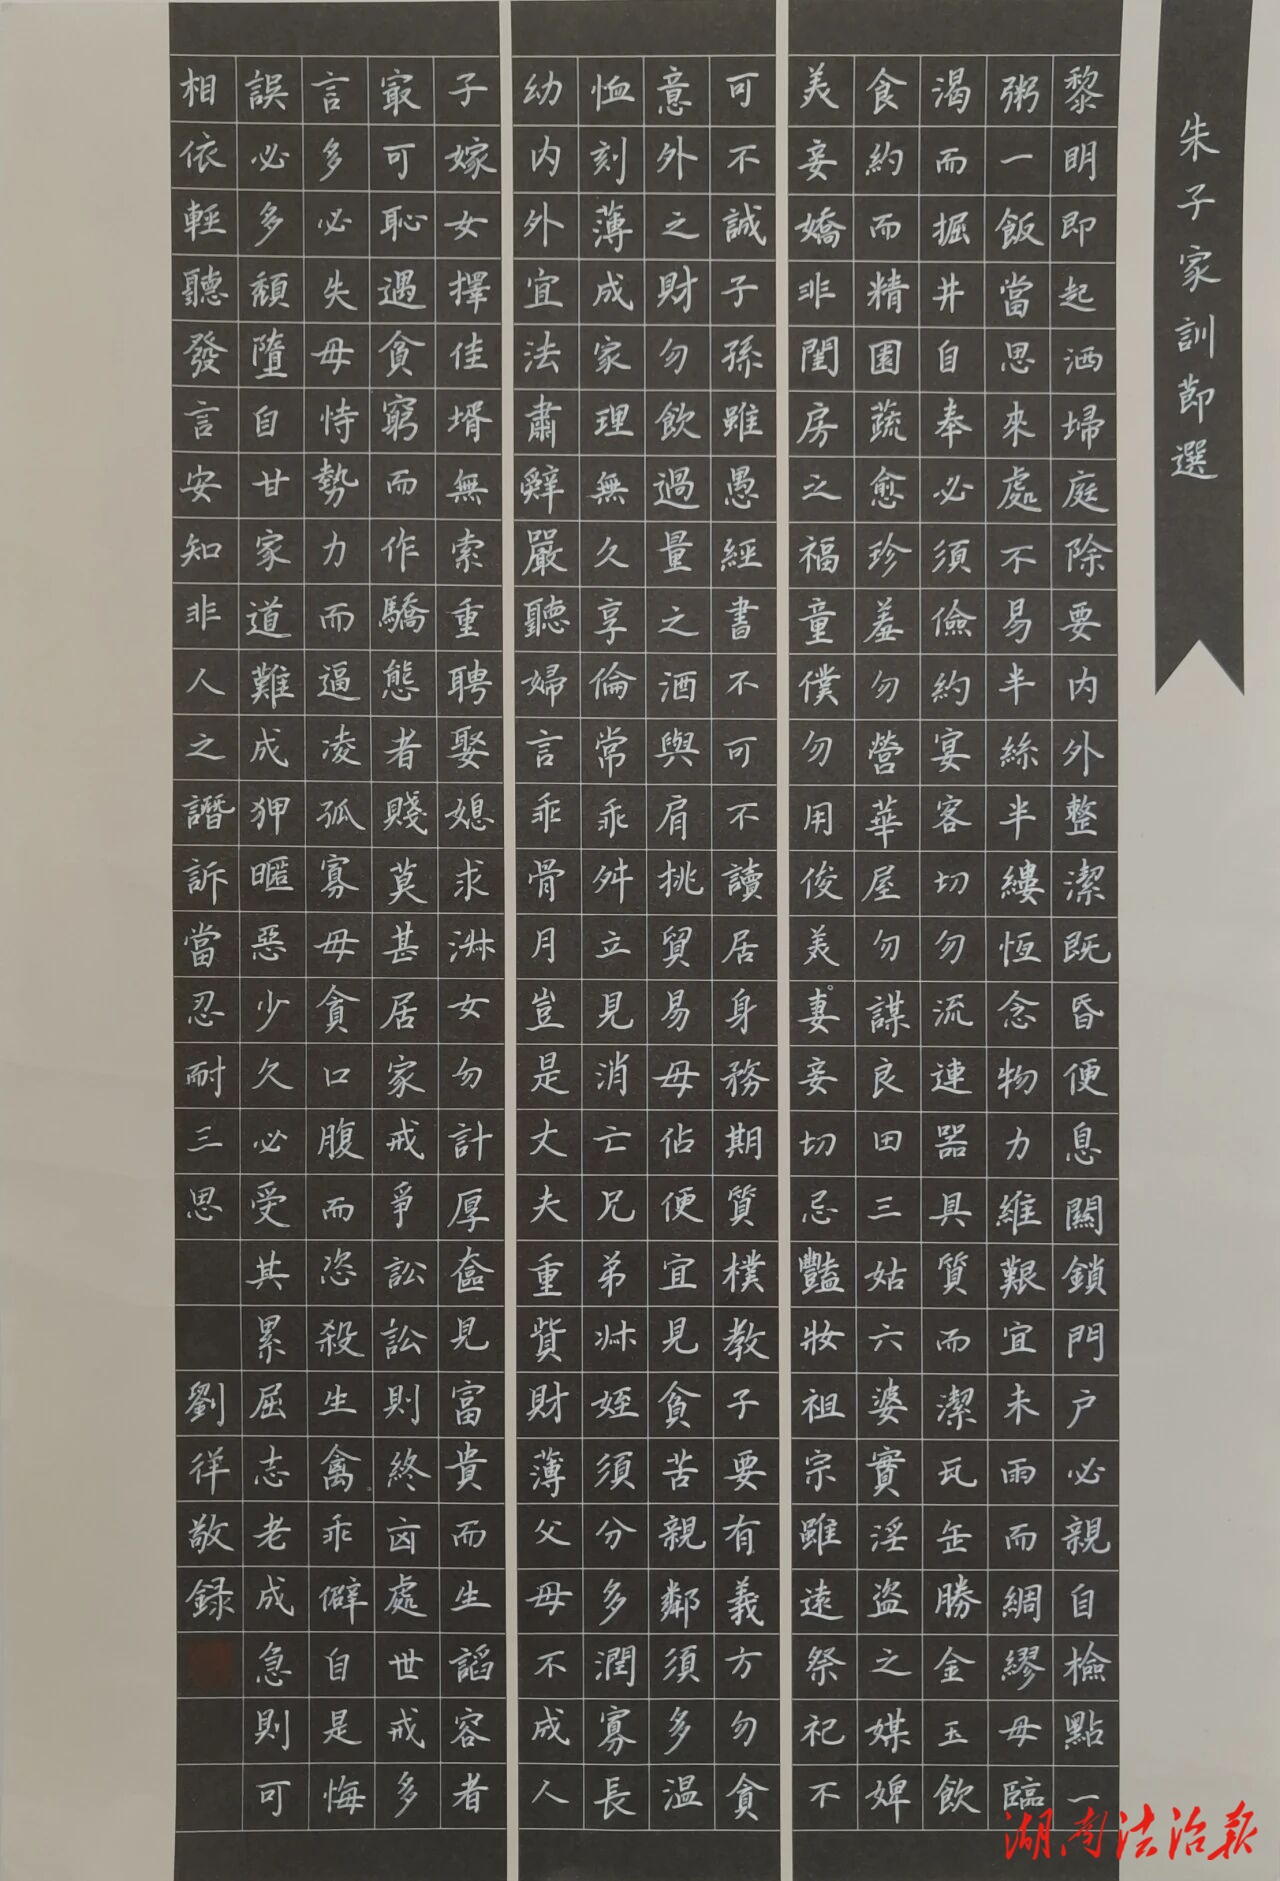 朱子家訓節選
黎明即起洒埽庭除要内外整潔既昏便息關鎖門户必親自檢點一
粥一飯當思來處不易半絲半縷恆念物力維艱宜未雨而綢繆毋臨
渴而掘井自奉必須儉約宴客切勿流連器具質而潔瓦缶勝金玉飲
食約而精園蔬愈珍羞勿營華屋勿謀良田三姑六婆實淫盜之媒婢
美妾嬌非閨房之福童僕勿用俊美妻妾切忌豔妝祖宗雖遠祭祀不
可不誠子孫雖愚經書不可不讀居身務期質樸教子要有義方勿貪
意外之財勿飲過量之酒與肩挑貿易毋佔便宜見貧苦親鄰須多温
恤刻薄成家理無久享倫常乖舛立見消亡兄弟叔姪須分多潤寡長
幼内外宜法肅辭嚴聽婦言乖骨月豈是丈夫重貲財薄父母不成人
子嫁女擇佳壻無索重聘娶媳求淑女勿計厚奩見富貴而生謟容者
㝡可恥遇貧窮而作驕態者賤莫甚居家戒爭訟訟則終凶處世戒多
言多必失毋恃勢力而逼凌孤寡毋貪口腹而恣殺生禽乖僻自是悔
誤必多頹墮自甘家道難成狎暱惡少久必受其累屈志老成急則可
相依輕聽發言安知非人之譖訴當忍耐三思 劉徉敬録
湖南法治报